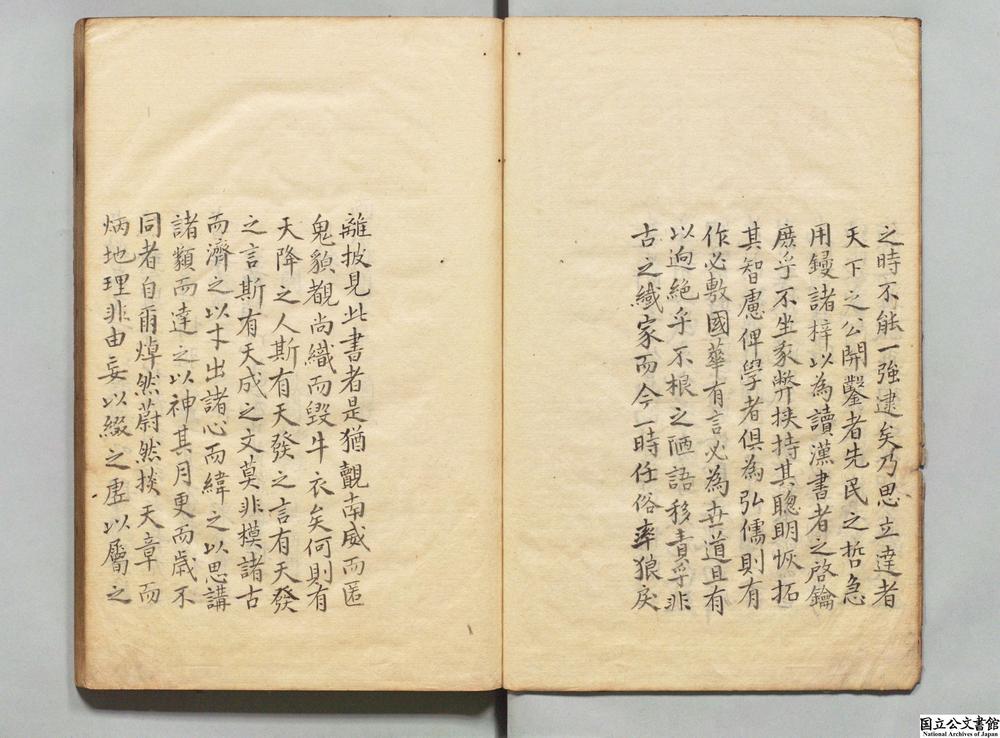 之時不能一強逮矣乃思立達者
天下之公開鑿者先民之哲急
用鋟諸梓以為讀漢書者之啓鑰
庶乎不坐豕弊挾持其聰明恢拓
其智慮俾學者俱為弘儒則有
作必敷國華有言必為世道且有
以逈絶乎不根之陋語移責乎非
古之纎家而今一時任俗率狼戾
離披見此書者是猶觀南威而匿
鬼貌覩尚織而毀牛衣矣何則有
天降之人斯有天發之言有天發
之言斯有天成之文莫非模諸古
而濟之以才出諸心而緯之以思講
諸類而達之以神其月更而歳不
同者自爾焯然蔚然掞天章而
炳地理非由妄以綴之虛以屬之
国立公文書館
National Archives of Japan